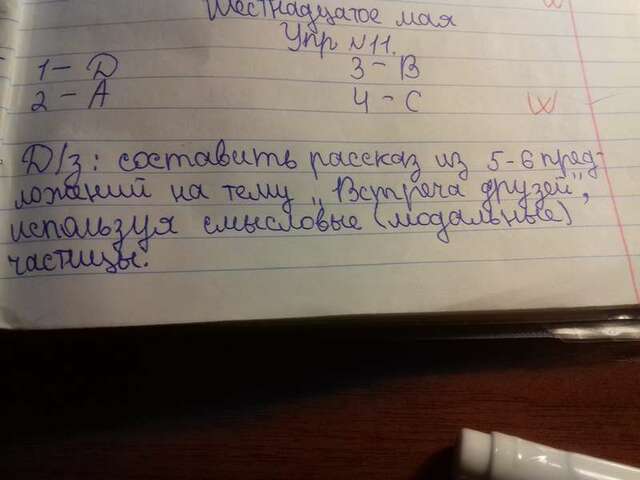 Шестнадцатое мая
Упр №11.
1 – D 3 – B
2 – A 4 – C
D/з: составить рассказ из 5-6 пред-
ложений на тему „Встреча друзей",
используя смысловые (модальные)
частицы.